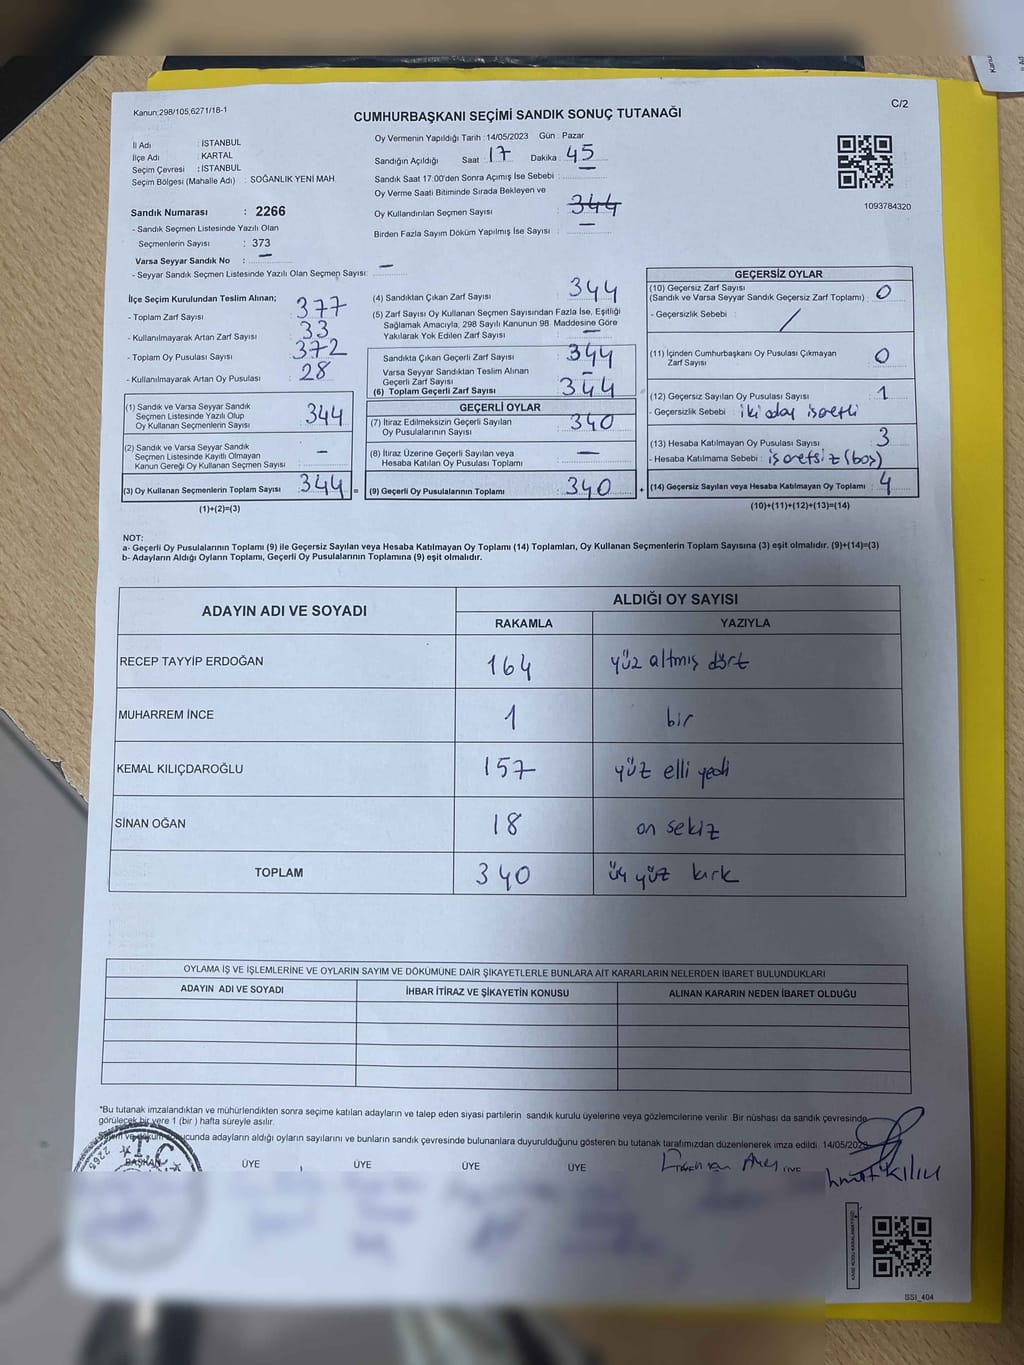 Kanun:298/105,6271/18-1
C/2
CUMHURBAŞKANI SEÇİMİ SANDIK SONUÇ TUTANAĞI
İl Adı : İSTANBUL
İlçe Adı : KARTAL
Seçim Çevresi : İSTANBUL
Seçim Bölgesi (Mahalle Adı) : SOĞANLIK YENİ MAH.
Sandık Numarası : 2266
- Sandık Seçmen Listesinde Yazılı Olan
Seçmenlerin Sayısı : 373
Varsa Seyyar Sandık No : —
- Seyyar Sandık Seçmen Listesinde Yazılı Olan Seçmen Sayısı: —
Oy Vermenin Yapıldığı Tarih :14/05/2023 Gün : Pazar
Sandığın Açıldığı Saat : 17 Dakika : 45
Sandık Saat 17:00'den Sonra Açımış İse Sebebi : —
Oy Verme Saati Bitiminde Sırada Bekleyen ve
Oy Kullandırılan Seçmen Sayısı : 344
Birden Fazla Sayım Döküm Yapılmış İse Sayısı : —
1093784320
İlçe Seçim Kurulundan Teslim Alınan;
- Toplam Zarf Sayısı : 377
- Kullanılmayarak Artan Zarf Sayısı : 33
- Toplam Oy Pusulası Sayısı : 372
- Kullanılmayarak Artan Oy Pusulası : 28
(1) Sandık ve Varsa Seyyar Sandık
Seçmen Listesinde Yazılı Olup
Oy Kullanan Seçmenlerin Sayısı : 344
(2) Sandık ve Varsa Seyyar Sandık
Seçmen Listesinde Kayıtlı Olmayan
Kanun Gereği Oy Kullanan Seçmen Sayısı : —
(3) Oy Kullanan Seçmenlerin Toplam Sayısı : 344 =
(1)+(2)=(3)
(4) Sandıktan Çıkan Zarf Sayısı : 344
(5) Zarf Sayısı Oy Kullanan Seçmen Sayısından Fazla İse, Eşitliği
Sağlamak Amacıyla; 298 Sayılı Kanunun 98. Maddesine Göre
Yakılarak Yok Edilen Zarf Sayısı : —
Sandıkta Çıkan Geçerli Zarf Sayısı : 344
Varsa Seyyar Sandıktan Teslim Alınan
Geçerli Zarf Sayısı : —
(6) Toplam Geçerli Zarf Sayısı : 344
GEÇERLİ OYLAR
(7) İtiraz Edilmeksizin Geçerli Sayılan
Oy Pusulalarının Sayısı : 340
(8) İtiraz Üzerine Geçerli Sayılan veya
Hesaba Katılan Oy Pusulası Toplamı : —
(9) Geçerli Oy Pusulalarının Toplamı : 340 +
GEÇERSİZ OYLAR
(10) Geçersiz Zarf Sayısı
(Sandık ve Varsa Seyyar Sandık Geçersiz Zarf Toplamı) : 0
- Geçersizlik Sebebi : /
(11) İçinden Cumhurbaşkanı Oy Pusulası Çıkmayan
Zarf Sayısı : 0
(12) Geçersiz Sayılan Oy Pusulası Sayısı : 1
- Geçersizlik Sebebi : iki aday işaretli
(13) Hesaba Katılmayan Oy Pusulası Sayısı : 3
- Hesaba Katılmama Sebebi : işaretsiz (boş)
(14) Geçersiz Sayılan veya Hesaba Katılmayan Oy Toplamı : 4
(10)+(11)+(12)+(13)=(14)
NOT:
a- Geçerli Oy Pusulalarının Toplamı (9) ile Geçersiz Sayılan veya Hesaba Katılmayan Oy Toplamı (14) Toplamları, Oy Kullanan Seçmenlerin Toplam Sayısına (3) eşit olmalıdır. (9)+(14)=(3)
b- Adayların Aldığı Oyların Toplamı, Geçerli Oy Pusulalarının Toplamına (9) eşit olmalıdır.
ADAYIN ADI VE SOYADI
ALDIĞI OY SAYISI
RAKAMLA YAZIYLA
RECEP TAYYİP ERDOĞAN 164 yüz altmış dört
MUHARREM İNCE 1 bir
KEMAL KILIÇDAROĞLU 157 yüz elli yedi
SİNAN OĞAN 18 on sekiz
TOPLAM 340 üç yüz kırk
OYLAMA İŞ VE İŞLEMLERİNE VE OYLARIN SAYIM VE DÖKÜMÜNE DAİR ŞİKAYETLERLE BUNLARA AİT KARARLARIN NELERDEN İBARET BULUNDUKLARI
ADAYIN ADI VE SOYADI İHBAR İTİRAZ VE ŞİKAYETİN KONUSU ALINAN KARARIN NEDEN İBARET OLDUĞU
*Bu tutanak imzalandıktan ve mühürlendikten sonra seçime katılan adayların ve talep eden siyasi partilerin sandık kurulu üyelerine veya gözlemcilerine verilir. Bir nüshası da sandık çevresinde
görülecek bir yere 1 (bir ) hafta süreyle asılır.
adayların aldığı oyların sayılarını ve bunların sandık çevresinde bulunanlara duyurulduğunu gösteren bu tutanak tarafımızdan düzenlenerek imza edildi. 14/05/2023
2265 T.C
BAŞKAN ÜYE ÜYE ÜYE ÜYE
SSI_404